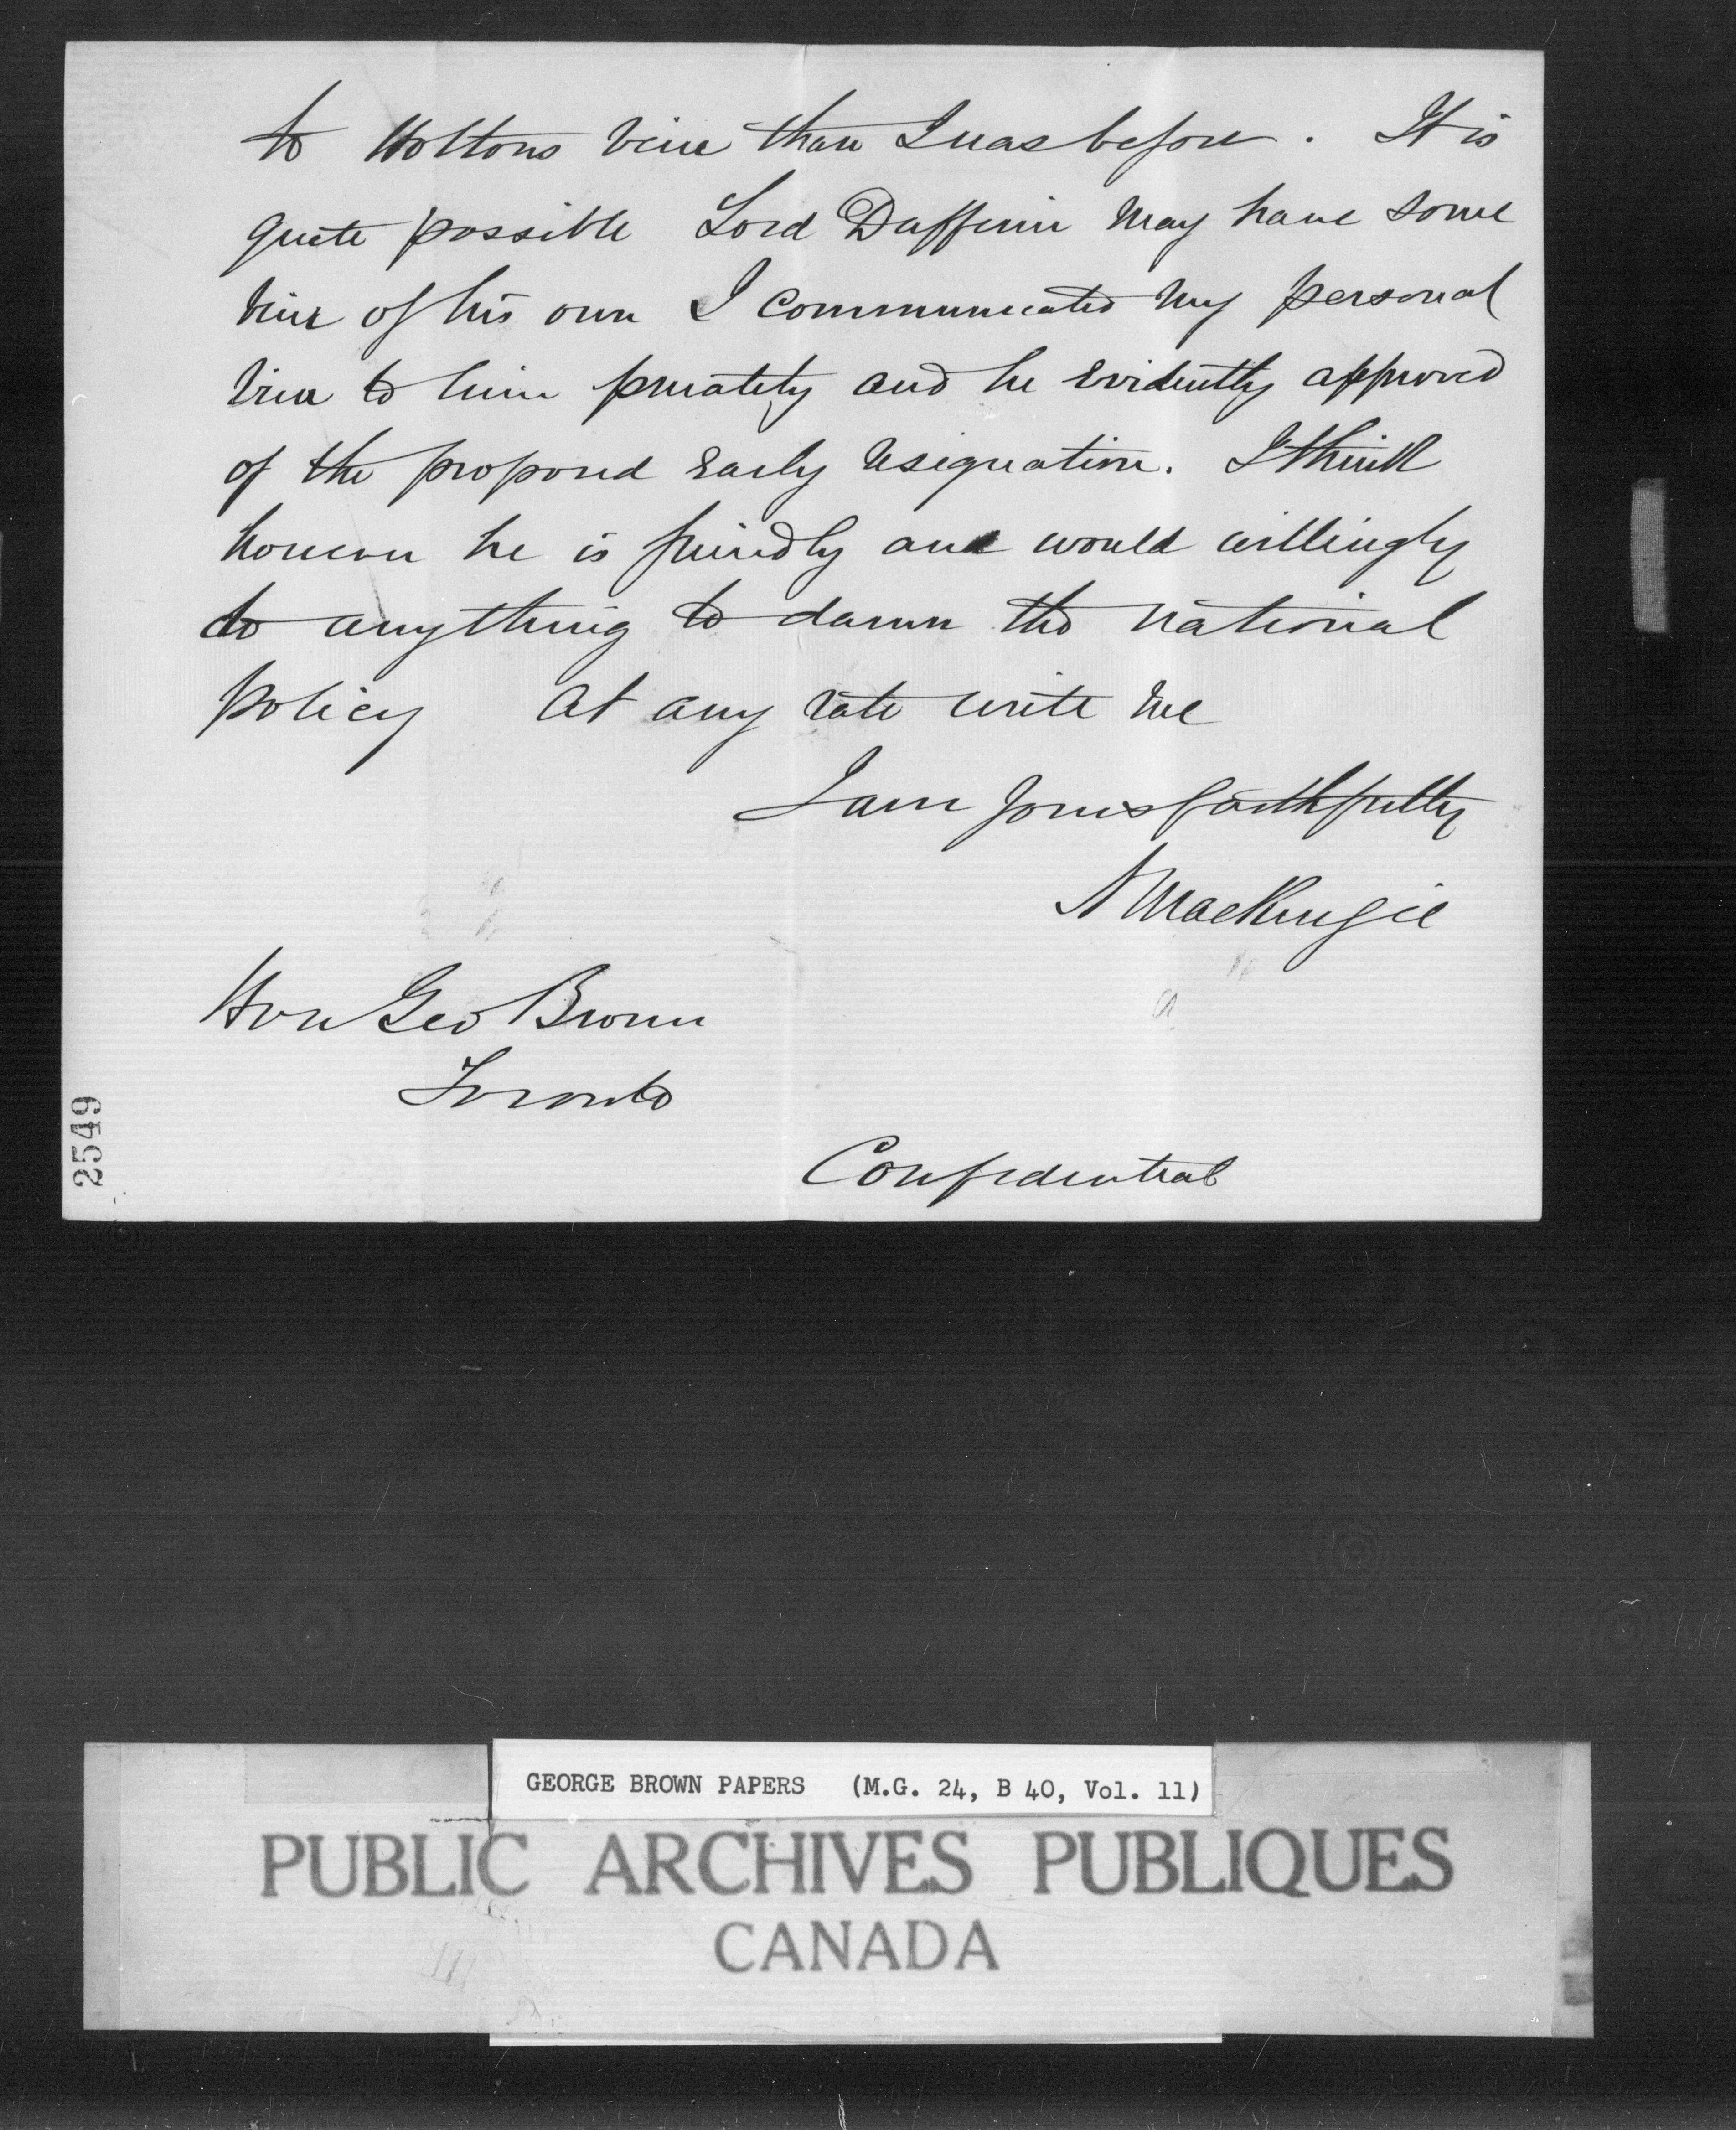 to Holtons view than I was before. It is
quite possible Lord Dufferin may have some
view of his own I communicated my personal
view to him privately and he evidently approved
of the proposed early resignation. I think
however he is friendly and would willingly
do anything to damn the national
policy At any rate write me
I am yours faithfully
A MacKenzie
Hon Geo Brown
Toronto
Confidential
2549
GEORGE BROWN PAPERS (M.G. 24, B 40, Vol. 11)
PUBLIC ARCHIVES PUBLIQUES
CANADA